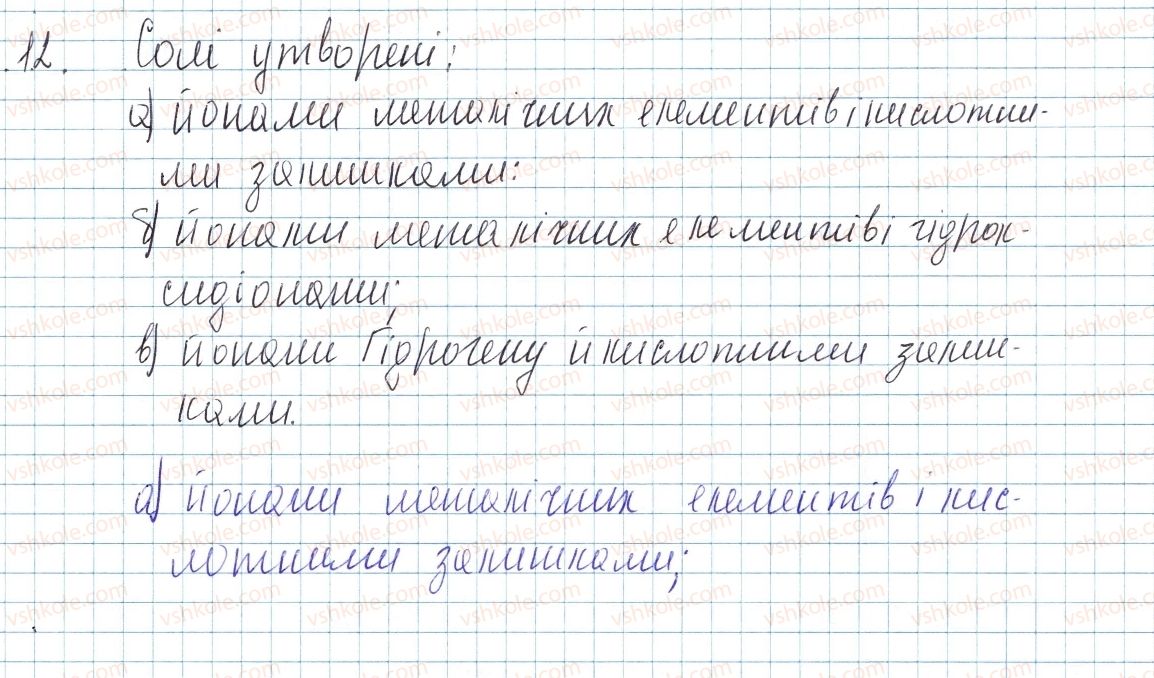 12. Солі утворені:
а) йонами металічних елементів і кислотни-
ми залишками:
б) йонами металічних елементів і гідрок-
сидіонами;
в) йонами Гідрогену й кислотними залиш-
ками.
а) йонами металічних елементів і кис-
лотними залишками;